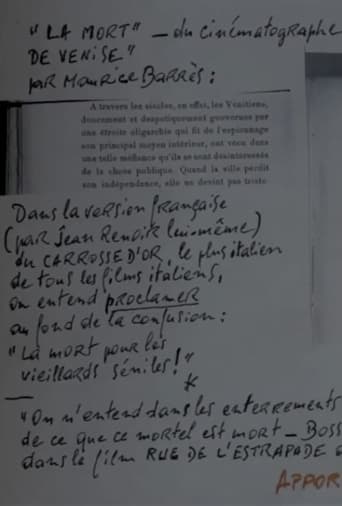 "LA MORT" – du cinématographe
DE VENISE"
par Maurice Barrès:
A travers les siècles, en effet, les Vénitiens,
doucement et despotiquement gouvernés par
une étroite oligarchie qui fit de l'espionnage
son principal moyen intérieur, ont vécu dans
une telle méfiance qu'ils se sont désintéressés
de la chose publique. Quand la ville perdit
son indépendance, elle ne devint pas triste
Dans la version française
(par Jean Renoir lui-même)
du CARROSSE D'OR, le plus italien
de tous les films italiens,
on entend proclamer
au fond de la confusion:
"La mort pour les
vieillards séniles!"
*
"On n'entend dans les enterrements
de ce que ce mortel est mort – BOSS
dans le film RUE DE L'ESTRAPADE
APPOR